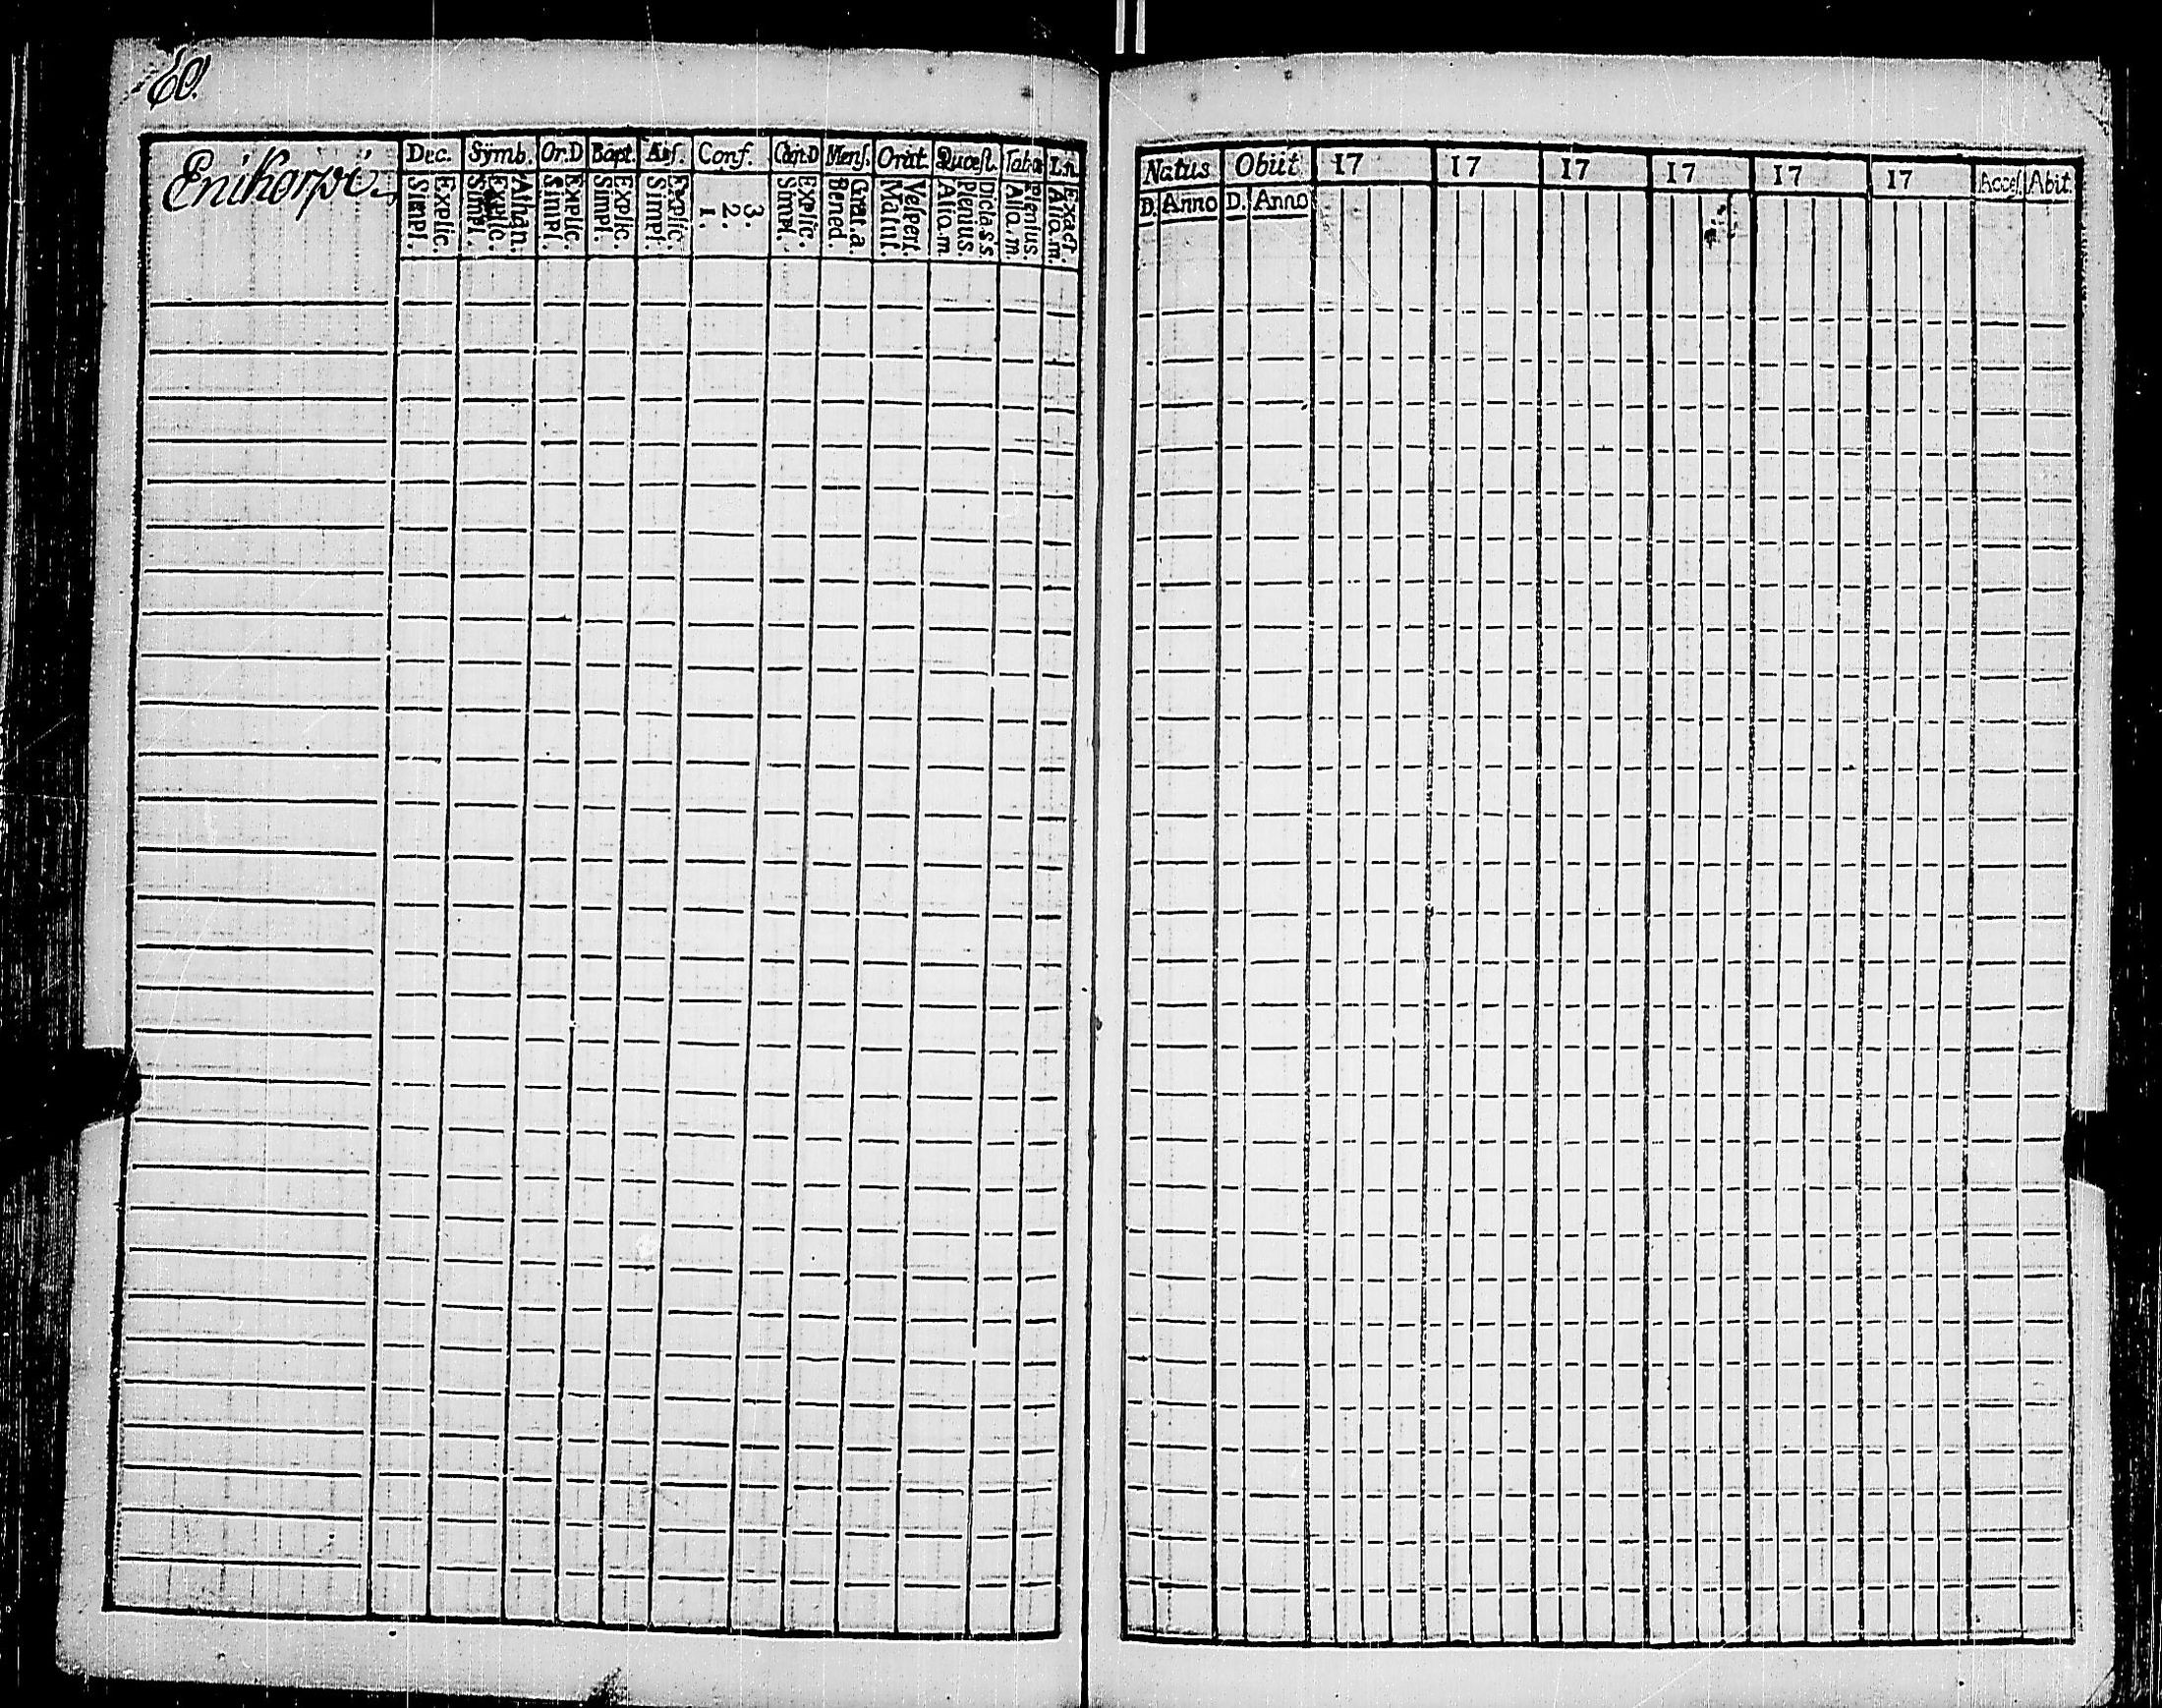 60.
Enikorpi.
Dec. Symb. Or.D Bapt. Abs. Conf. Cœn.D Mens. Orat. Quœst. Tab.œ I.n.
Simpl. Explic. Simpl. Explic. Athan. Simpl. Explic. Simpl. Explic. Simpl. Explic. 1. 2. 3. Simpl. Explic. Bened. Grat.a. Matut. Vespert. Alio.m. Plenius. Dicta.s.s. Alio.m. Plenius. Alio.m. Exact.
Natus Obiit 17 17 17 17 17 17 Acces. Abit.
D. Anno D. Anno